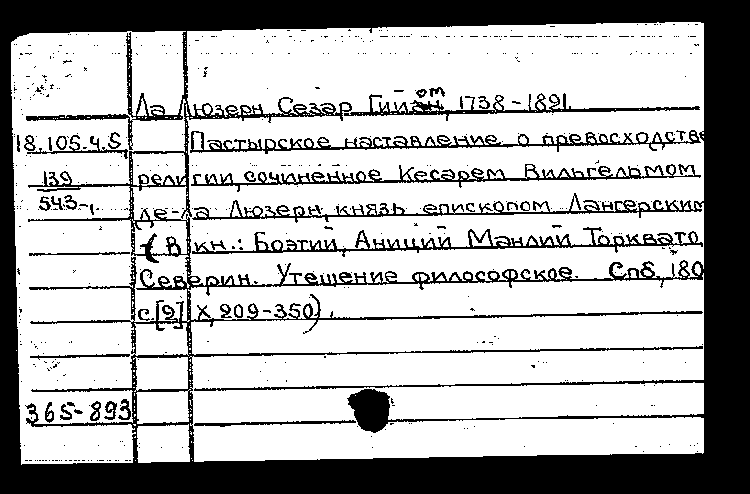 Ла Люзерн, Сезар Гийом, 1738-1891.
18.105.4.5, Пастырское наставление о превосходстве
139 религии, сочиненное Кесарем Вильгельмом
543-1. де-ла Люзерн, князь епископом Лангерским
(В кн.: Боэтий, Аниций Манлий Торквато
Северин. Утешение философское. Спб, 180
с. [2], X, 209-350).
365-893